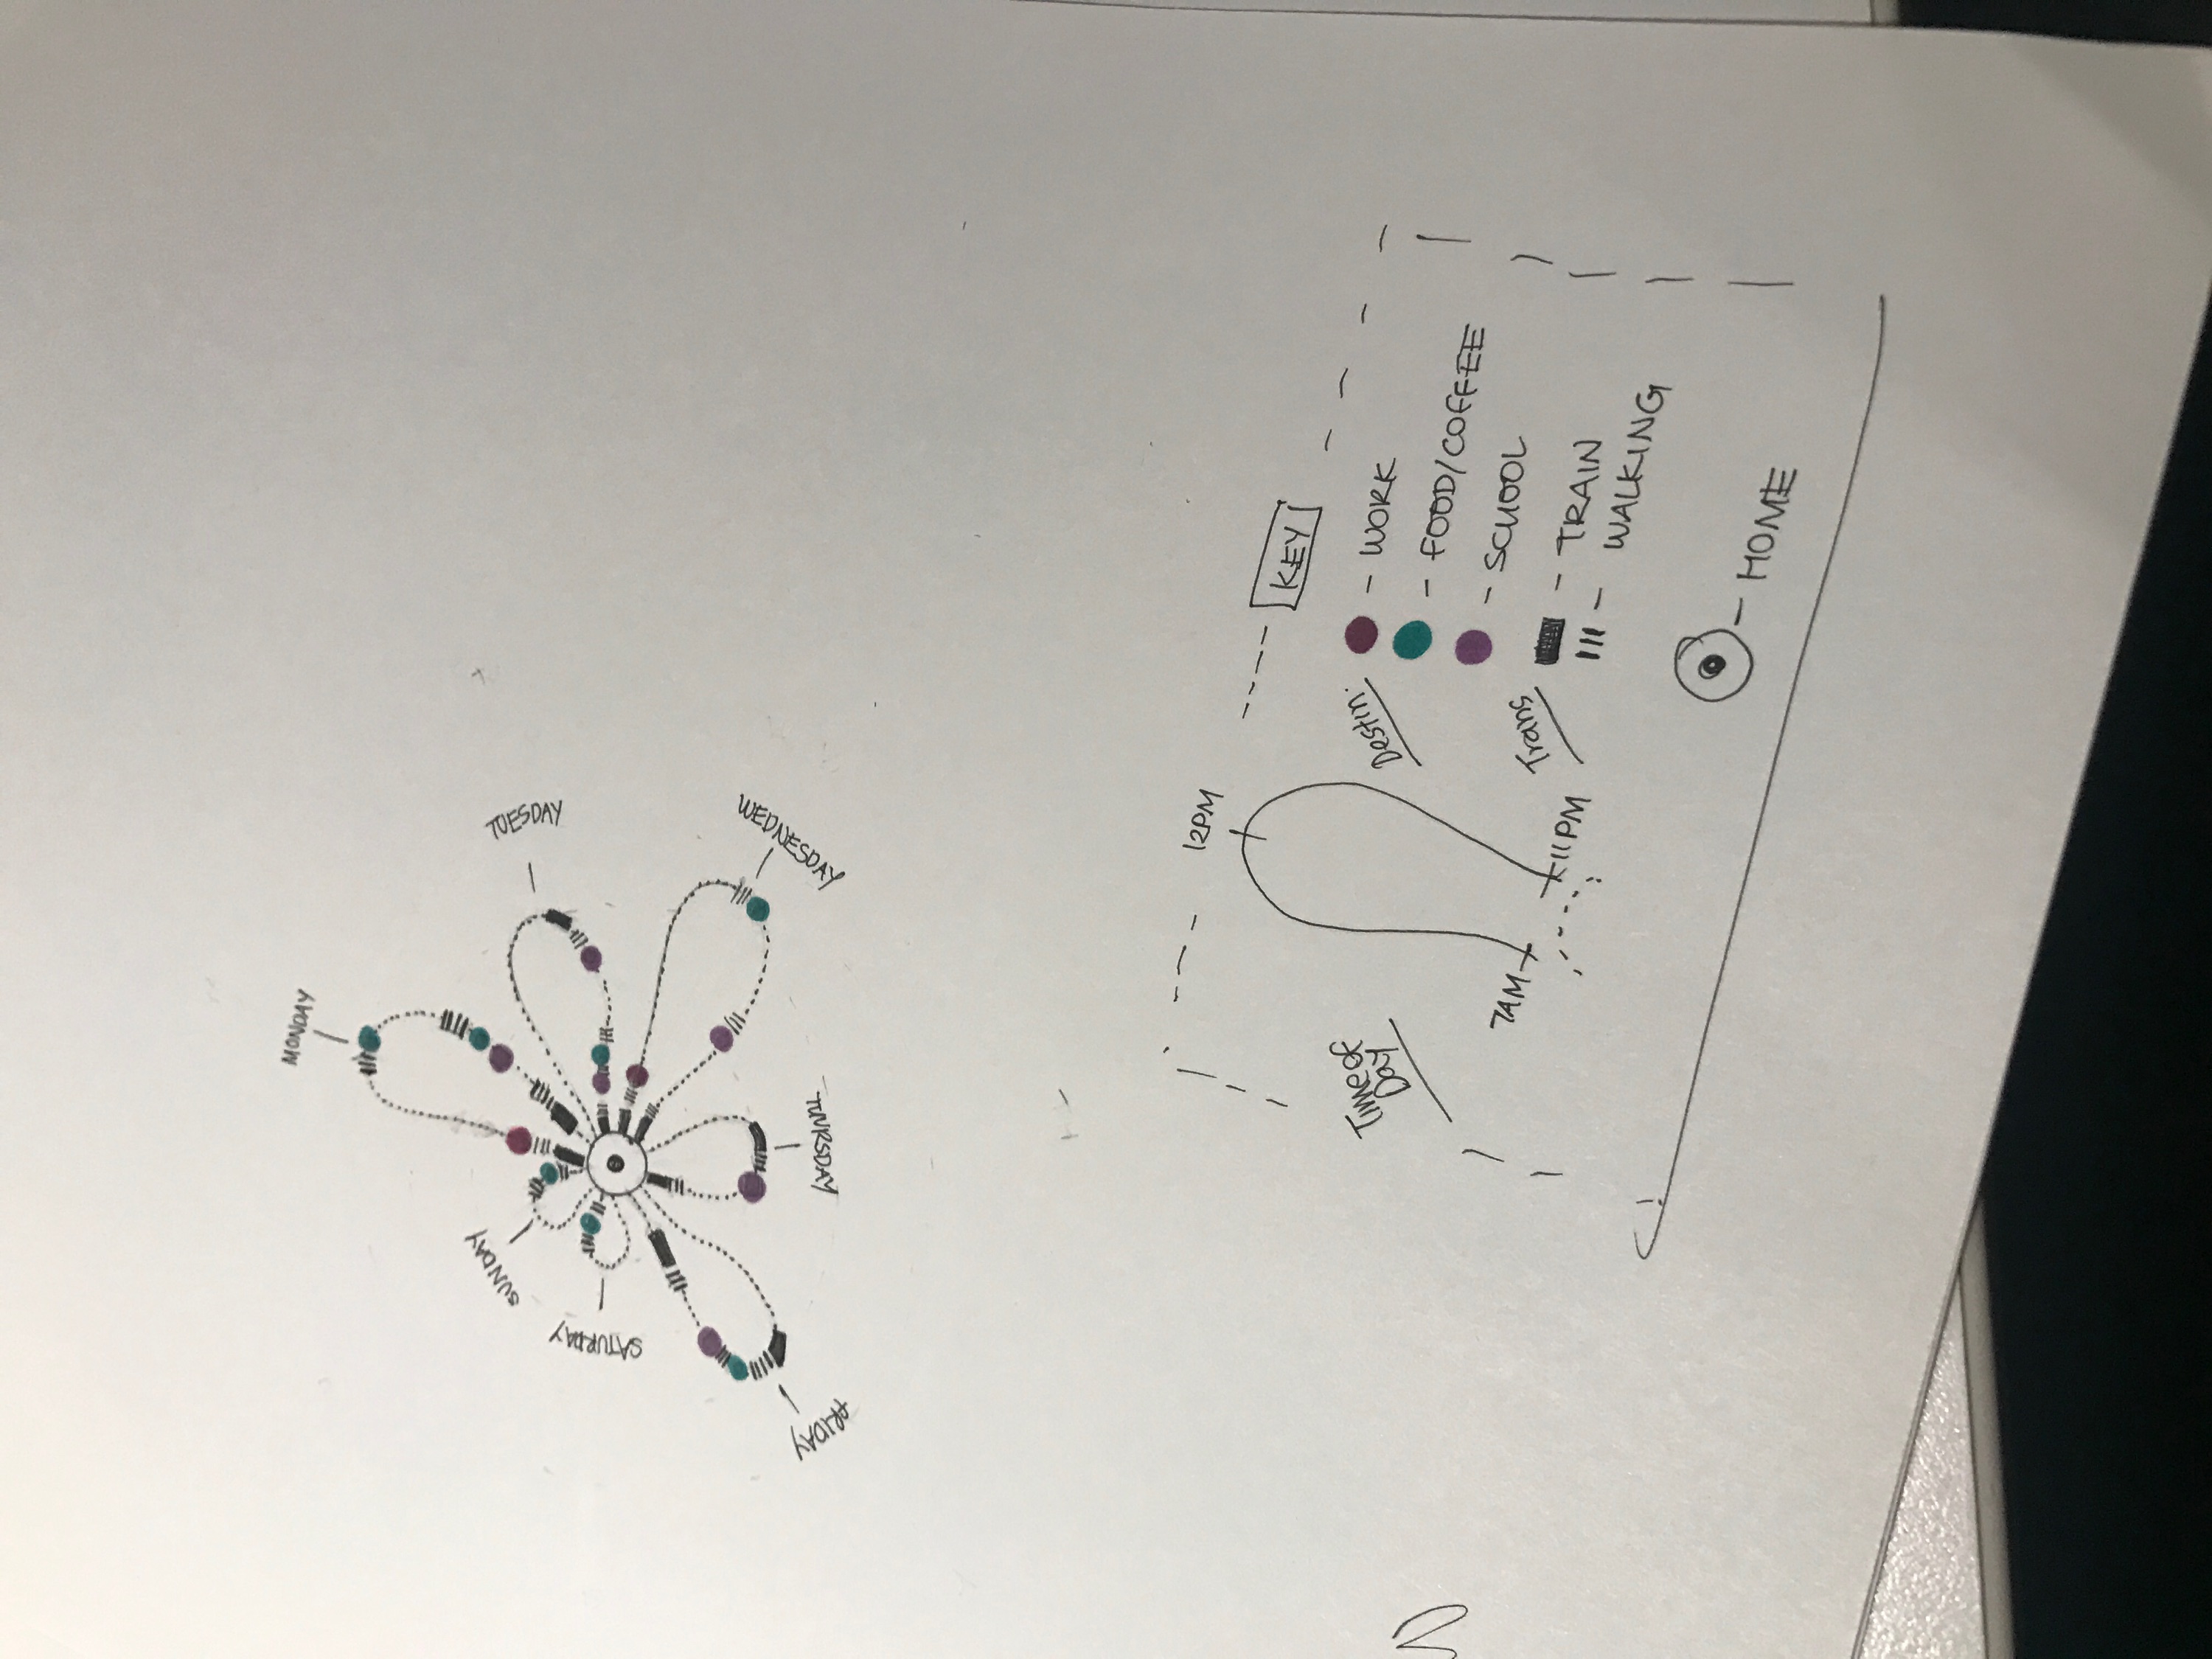 MONDAY
TUESDAY
WEDNESDAY
THURSDAY
FRIDAY
SATURDAY
SUNDAY
12PM
KEY
Time of
Day
7AM
11PM
Destin.
- WORK
- FOOD/COFFEE
- SCHOOL
Trans
- TRAIN
- WALKING
- HOME